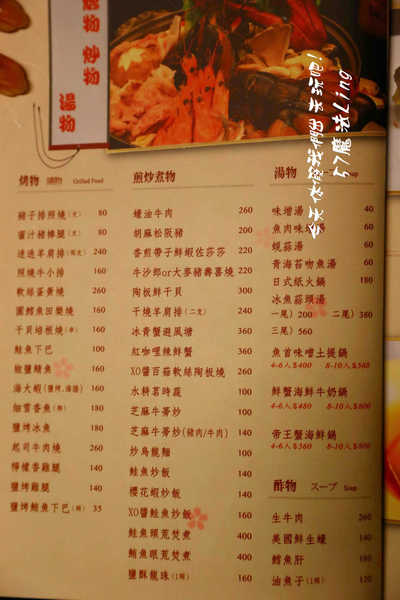 炒物
湯物
烤物 Grilled Food
豬子排照燒(支) 80
蜜汁豬棒腿(支) 80
迷迭羊肩排(兩支) 240
照燒牛小排 160
軟絲蛋黃燒 260
圓鱈魚田樂燒 160
干貝培根燒(串) 160
鮭魚下巴 100
椒鹽鯖魚 160
海大蝦(鹽烤.滷醬) 160
細雪香魚 180
鹽烤冰魚 180
起司牛肉燒 260
檸檬香雞腿 140
鹽烤雞腿 140
鹽烤鮪魚下巴 35
煎炒煮物
蠔油牛肉 260
胡麻松阪豬 200
香煎帶子鮮蝦佐莎莎 220
牛沙郎or大麥豬壽喜燒 220
陶板鮮干貝 300
干燒羊肩排(二支) 240
冰青蟹避風塘 360
紅咖哩辣鮮蟹 360
XO醬百菇軟絲陶板燒 260
水耕茗時蔬 100
芝麻牛蒡炒 100
芝麻牛蒡炒(豬肉/牛肉) 140
炒烏龍麵 100
鮭魚炒飯 140
櫻花蝦炒飯 140
XO醬鮭魚炒飯 160
鮭魚頭荒焚煮 400
鮪魚眼荒焚煮 400
鹽酥龍珠(1顆) 160
湯物 Soup
味增湯 40
魚肉味增湯 60
蜆蒜湯 60
青海苔吻魚湯 60
日式紙火鍋 180
冰魚蒜頭湯
一尾) 200 二尾) 380
三尾) 560
魚首味噌土提鍋
4-6人$400 8-10人$560
鮮蟹海鮮牛奶鍋
4-6人$480 8-10人$800
帝王蟹海鮮鍋
4-6人$560 8-10人$800
酢物 スープ Soup
生牛肉 260
美國鮮生蠔 140
鱈魚肝 180
油魚子(1顆) 120
今天休假我們出去玩吧!
57魔法Ling